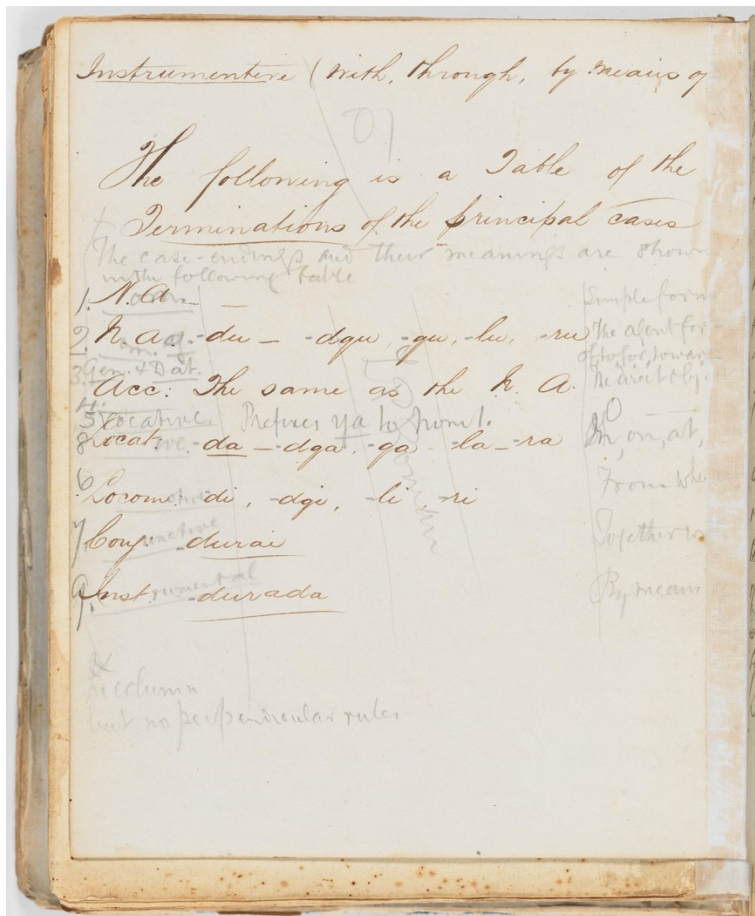 Instrumentive (with, through, by means of
10
The following is a Table of the
Terminations of the principal cases
+
The case-endings and their meanings are shown
in the following table
1. N. a. — Simple form
2. N. ag. -du — -dgu, -gu, -lu, -ru The agent for
3. Gen. & Dat. of, to, for, toward
4. Acc: The same as the N. A. The direct obj.
5 Vocative. Prefixes ya to front. O
8 Locative -da — -dga, -ga -la — -ra In, on, at,
6 Locom: -di, -dgi, -li -ri From whe
7 Conjunctive -durai Together w
9. Instrumental -durada By means
X
In column
but no perpendicular rules